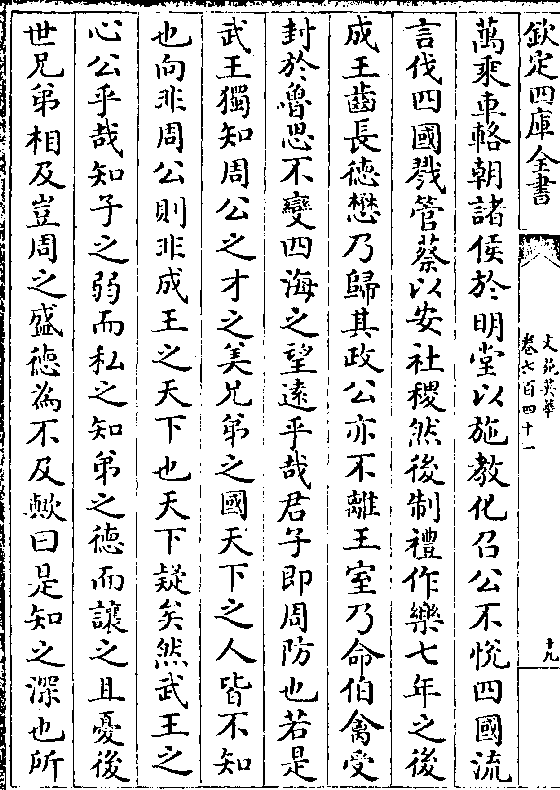 欽定四庫全書
文苑英華
卷七百四十一
十九
萬乘車輅朝諸侯於明堂以施教化召公不悅四國流
言伐四國戮管蔡以安社稷然後制禮作樂七年之後
成王齒長德懋乃歸其政公亦不離王室乃命伯禽受
封於魯恐不變四海之望遠乎哉君子即周防也若是
武王獨知周公之才之美兄弟之國天下之人皆不知
也向非周公則非成王之天下也天下疑矣然武王之
心公乎哉知子之弱而私之知弟之德而讓之且憂後
世兄弟相及豈周之盛德為不及歟曰是知之深也所